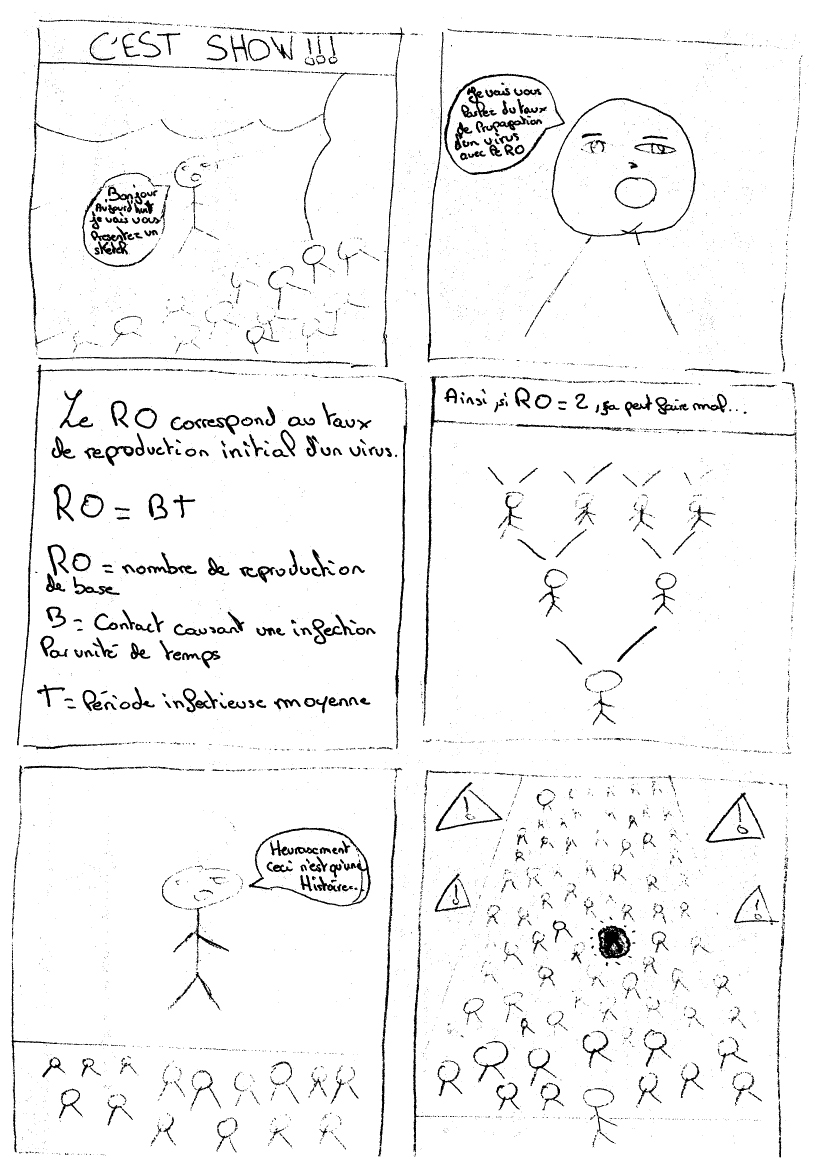 C'EST SHOW!!!
Bonjour
Aujourd'huit
je vais vous
Presentez un
sketch
Je vais vous
Parlez du taux
de Propagation
d'un virus
avec le RO
Le RO correspond au taux
de reproduction initial d'un virus.
RO = BT
RO = nombre de reproduction
de base
B = Contact causant une infection
Par unité de temps
T = Période infectieuse moyenne
Ainsi, si RO = 2, ça peut faire mal...
Heureusement
ceci n'est qu'une
Histoire...
!
!
!
!